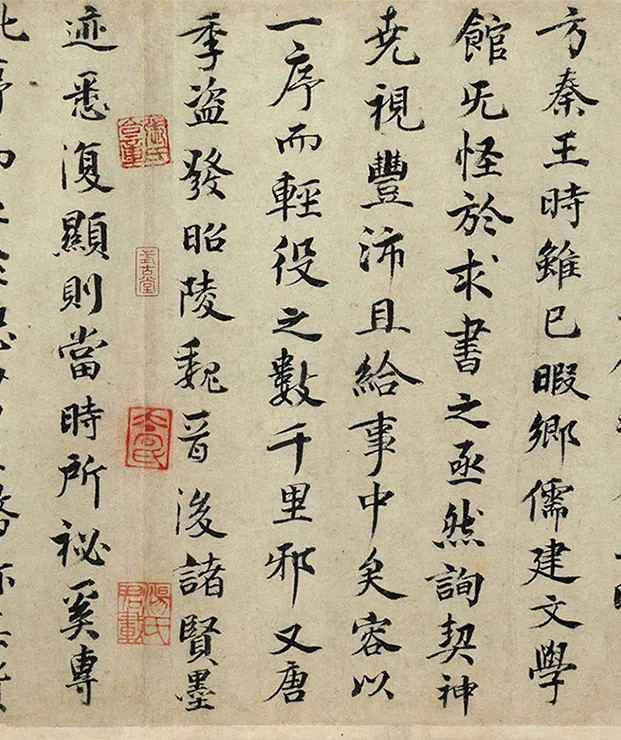 方秦王時雖已暇鄉儒建文學
館旡怪於求書之亟然詢契神
尭視豐沛且給事中矣容以
一序而輕役之數千里邪又唐
季盜發昭陵魏晉後諸賢墨
式古堂
迹悉復顯則當時所祕奚專